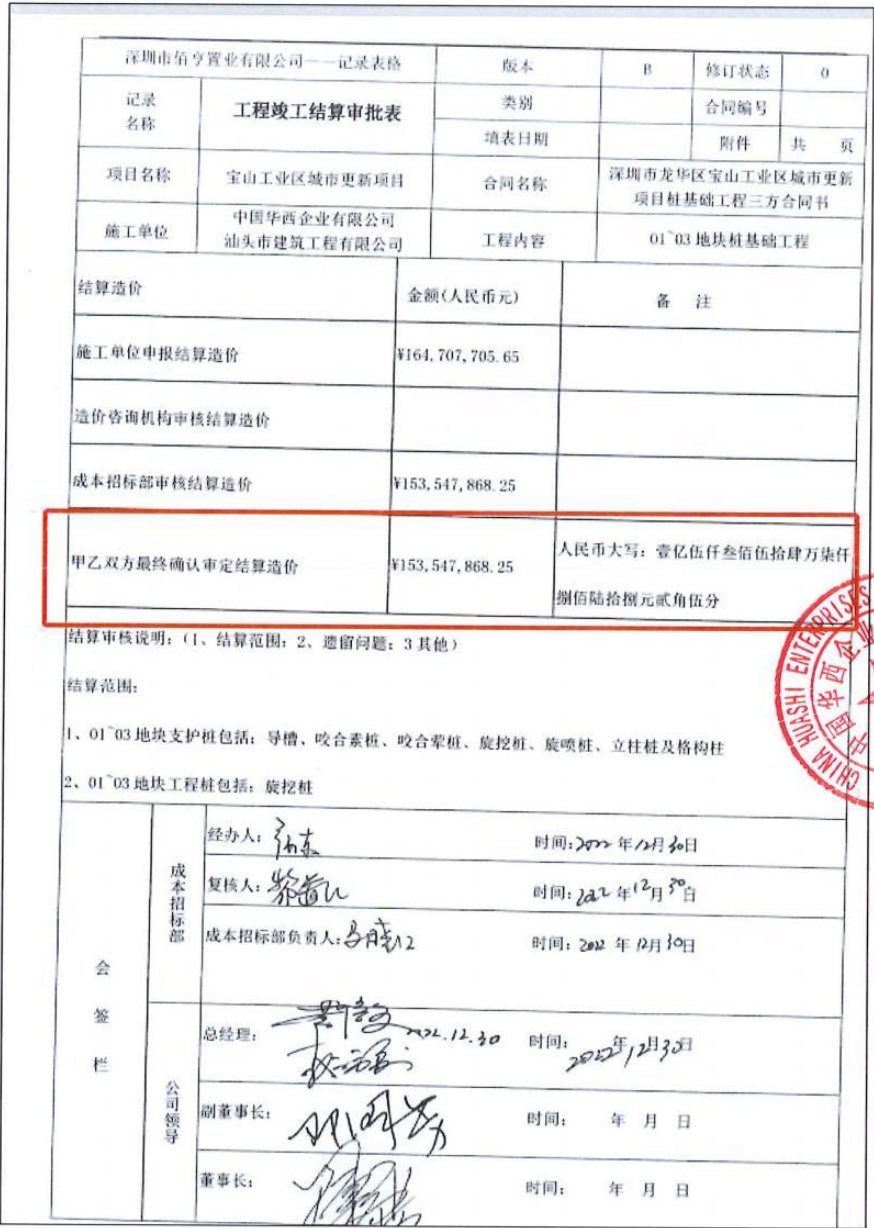 深圳市佰亨置业有限公司——记录表格 版本 B 修订状态 0
记录名称 工程竣工结算审批表 类别 合同编号
填表日期 附件 共 页
项目名称 宝山工业区城市更新项目 合同名称 深圳市龙华区宝山工业区城市更新
项目桩基础工程三方合同书
施工单位 中国华西企业有限公司
汕头市建筑工程有限公司 工程内容 01~03 地块桩基础工程
结算造价 金额(人民币元) 备 注
施工单位申报结算造价 ¥164,707,705.65
造价咨询机构审核结算造价
成本招标部审核结算造价 ¥153,547,868.25
甲乙双方最终确认审定结算造价 ¥153,547,868.25 人民币大写：壹亿伍仟叁佰伍拾肆万柒仟
捌佰陆拾捌元贰角伍分
结算审核说明：（1、结算范围；2、遗留问题；3 其他）
结算范围：
1、01~03 地块支护桩包括：导槽、咬合素桩、咬合荤桩、旋挖桩、旋喷桩、立柱桩及格构柱
2、01~03 地块工程桩包括：旋挖桩
CHINA HUASHI ENTERPRISES
中国华西企业
会签栏
成本招标部
经办人： 时间：2022 年 12 月 30 日
复核人： 时间：2022 年 12 月 30 日
成本招标部负责人： 时间：2022 年 12 月 30 日
公司领导
总经理： 2022.12.30 时间：2022 年 12 月 30 日
副董事长： 时间： 年 月 日
董事长： 时间： 年 月 日